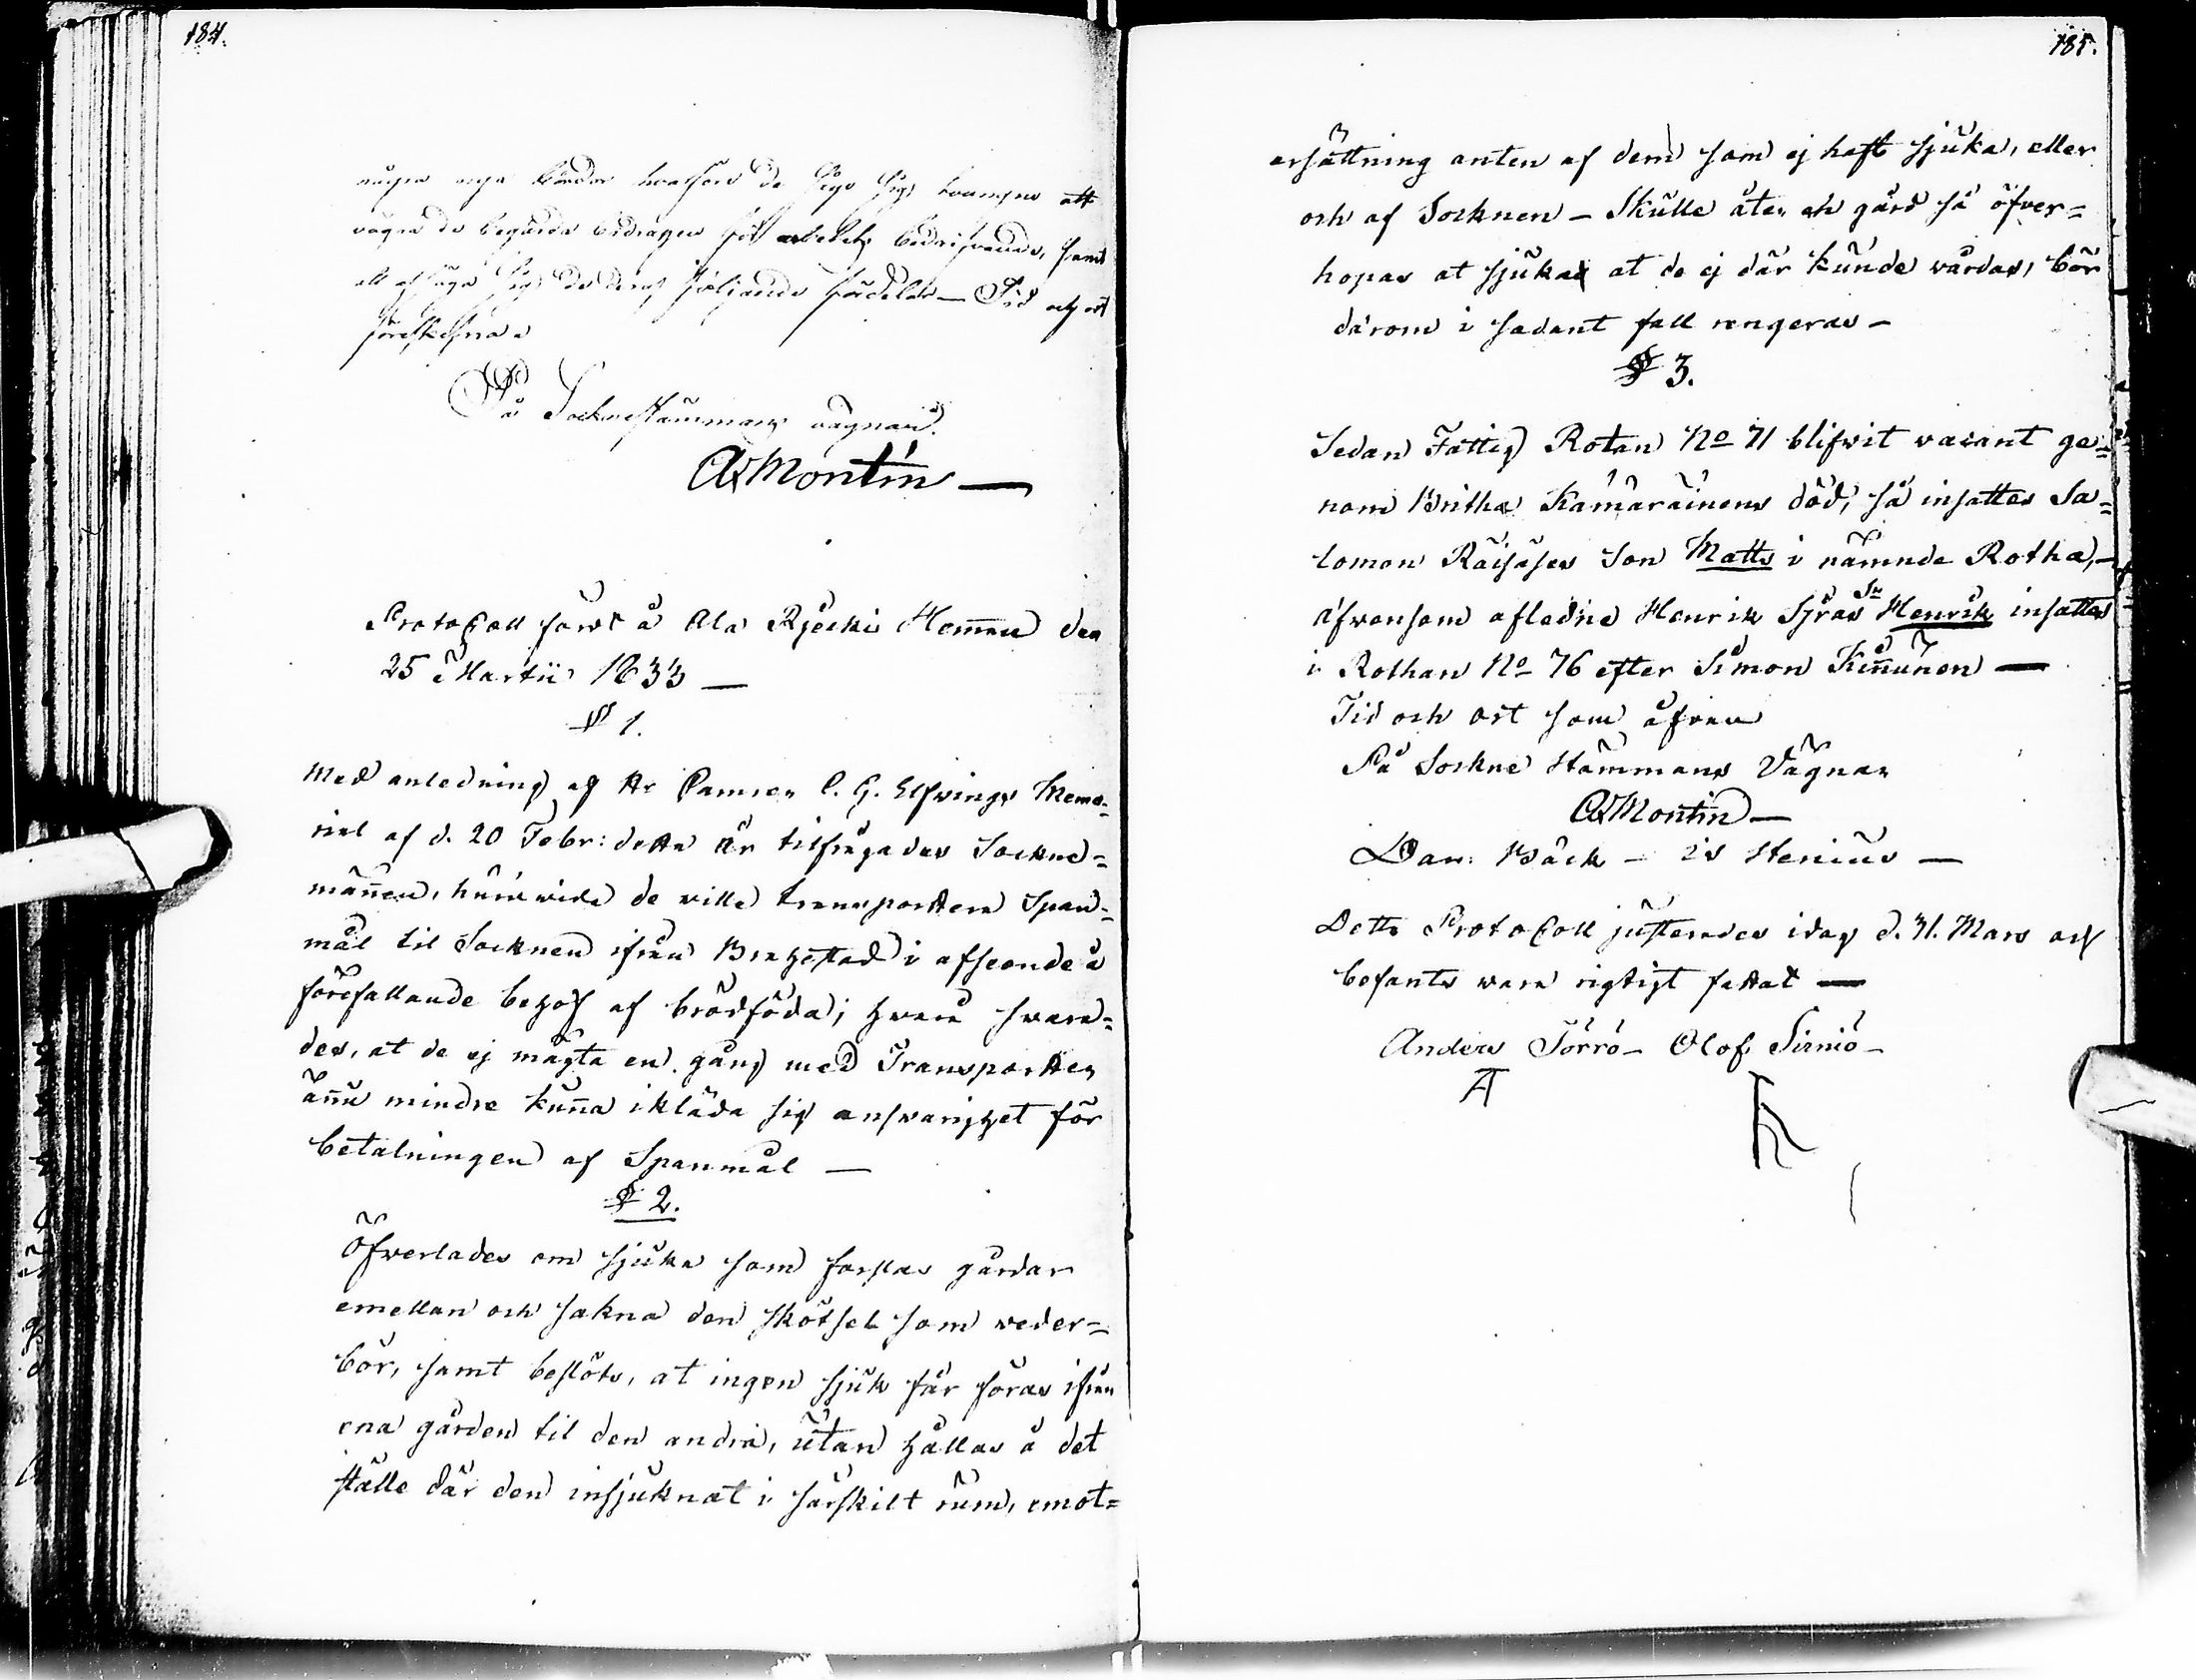 184.
några nya bördor hvarföre de sågo sig tvungne att
vägra de begärda bidragen för arbetets bedrifvande, samt
att afsäga sig de deraf följande fördelar — Tid och ort
På Sockne Stämmans vägnar.
A Montin —
Protocoll fördt å Ala Kjecki Hem̄an den
25 Martii 1833 —
§ 1.
Med anledning af Hr C. G. Elfvings Memo=
rial af d. 20 Febr: detta År tilfrågades Sockne=
mäñen, huruvida de ville transportera Span=
mål til Socknen ifrån Brahestad i afseende å
förefallande behof af brödföda; hvarå svara=
des, at de ej mägta en gång med Transporten
äñu mindre kuña ikläda sig answarighet för
betalningen af Spanmål —
§ 2.
Öfverlades om sjuka som forslas gårdar
emellan och sakna den skötsel som veder=
bör, samt beslöts, at ingen sjuk får föras ifrån
ena gården til den andra, utan hållas å det
ställe där den insjuknat i särskilt rum, emot=
185.
ersättning anten af dem som ej haft sjuka, eller
och af Socknen — Skulle åter en gård så öfver=
hopas at sjuka at de ej där kunde vårdas, bör
därom i sådant fall rengeras —
§ 3.
Sedan Fattig Rotan No 71 blifvit vacant ge=
nom Britha Kämäräinens död, så insattes Sa=
lomon Räisäses Son Matts i nämnde Rotha, —
äfvensom aflednе Henrik Sjras Sn Henrik insattes
i Rothan No 76 efter Simon Kiñunen —
Tid och ort som åfvan
På Sockne Stämmans Vägnar
A Montin —
Dan: Bäck — is Stenius —
Detta Protocoll justerades idag d. 31. Mars och
befants vara rigtigt fattat —
Anders Törrö — Olof Sirniö —